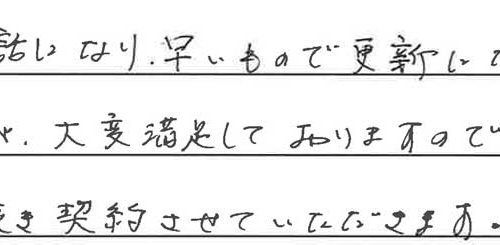 話になり、早いもので更新に
、大変満足しておりますので
き契約させていただきます。